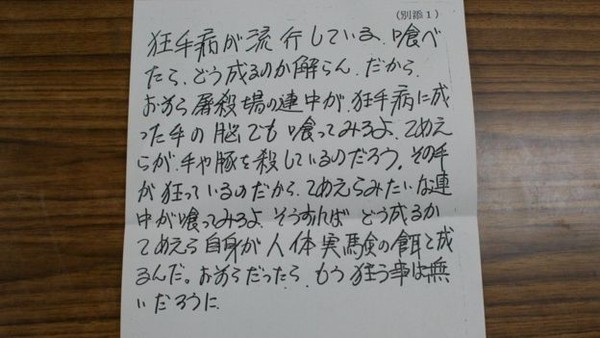 （別添１）
狂手病が流行している、喰べ
たら、どう成るのか解らん、だから、
おまら屠殺場の連中が、狂手病に成
った手の脳でも喰ってみろよ、てめえ
らが、手や豚を殺しているのだろう。その手
が狂っているのだから、てめえらみたいな連
中が喰ってみろよ、そうすればどう成るか
てめえら自身が人体実験の餌と成
るんだ。おまらだったら、もう狂う事は無
いだろうに